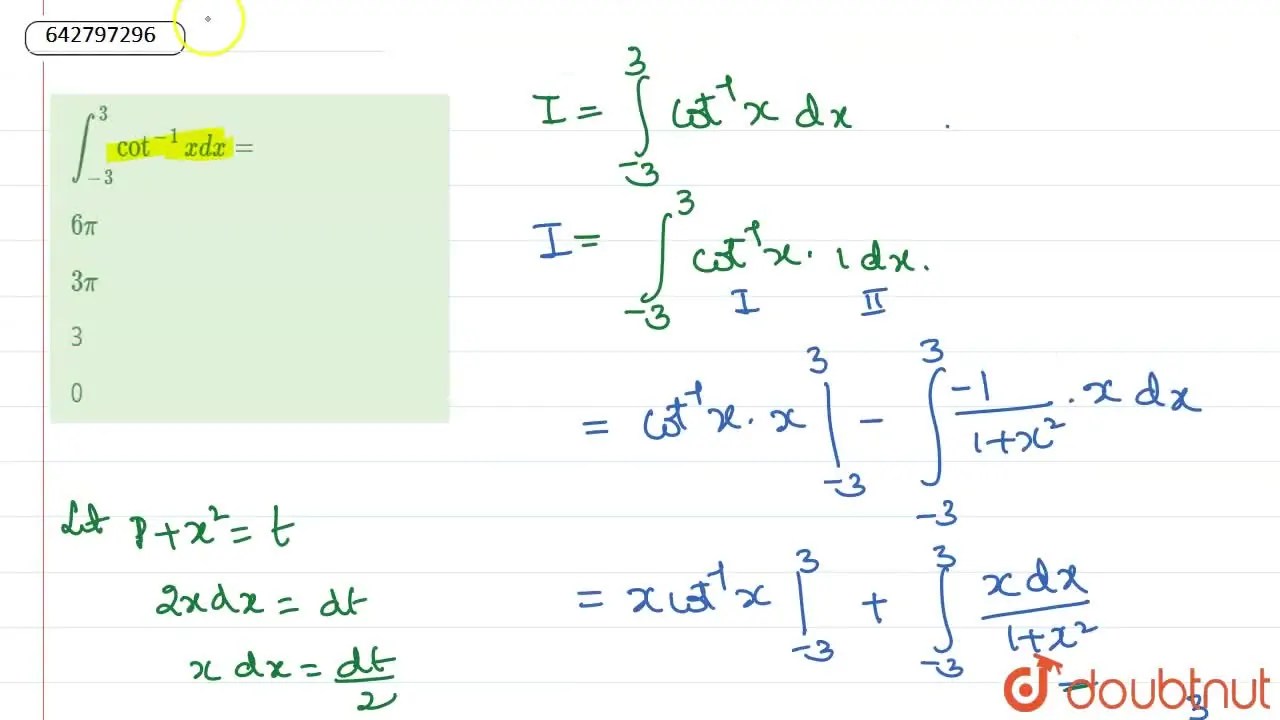 642797296
∫₋₃³ cot⁻¹ xdx =
6π
3π
3
0
I = ∫₋₃³ cot⁻¹ x dx
I = ∫₋₃³ cot⁻¹ x · 1 dx.
I II
= cot⁻¹ x · x |₋₃³ - ∫₋₃³ -1/(1+x²) · x dx
= x cot⁻¹ x |₋₃³ + ∫₋₃³ x dx/(1+x²)
Let 1 + x² = t
2x dx = dt
x dx = dt/2
3
doubtnut